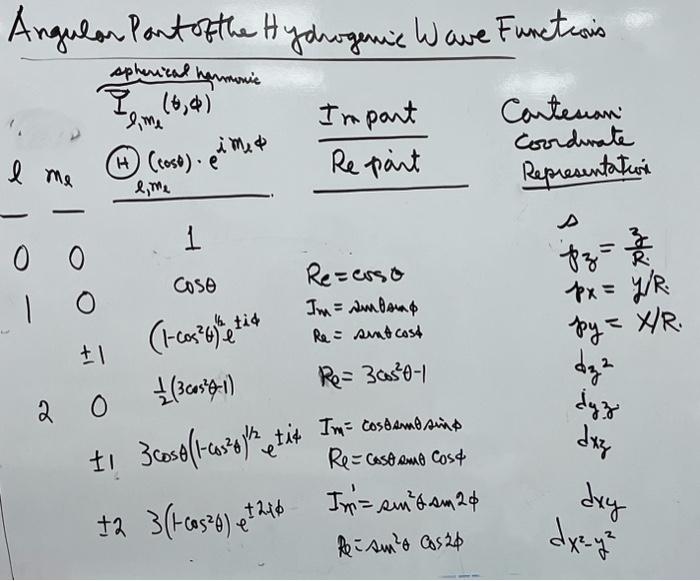 Angular Part of the Hydrogenic Wave Functions
spherical harmonic
Y_{l,m_l} (θ,φ)
Ⓗ_{l,m_l} (cosθ) · e^{i m_l φ}
Im part
Re part
Cartesian
Coordinate
Representation
l m_l
0 0 1 s
1 0 cosθ Re = cosθ pz = z/R.
±1 (1-cos²θ)^{1/2} e^{±iφ} Im = sinθ sinφ px = y/R.
Re = sinθ cosφ py = x/R.
2 0 ½(3cos²θ-1) Re = 3cos²θ-1 dz²
±1 3cosθ(1-cos²θ)^{1/2} e^{±iφ} Im = cosθ sinθ sinφ dyz
Re = cosθ sinθ cosφ dxz
±2 3(1-cos²θ) e^{±2iφ} Im = sin²θ sin2φ dxy
Re = sin²θ cos2φ dx²-y²